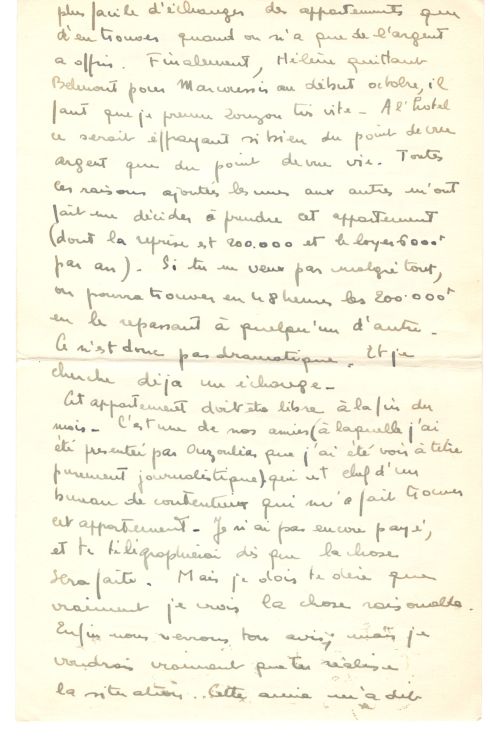 plus facile d'échanger des appartements que
d'en trouver quand on n'a que de l'argent
a offrir. Finalement, Hélène quittant
Belmont pour Marcoussis au début octobre, il
faut que je prenne Zouzou très vite - A l'hotel
ce serait effrayant si bien du point de vue
argent que du point de vue vie. Toutes
ces raisons ajoutées les unes aux autres m'ont
fait me décider à prendre cet appartement
(dont la reprise est 200.000 et le loyer 6000f
par an). Si tu ne veux pas malgré tout,
on pourra trouver en 48 heures les 200.000f
en le repassant à quelqu'un d'autre -
Ce n'est donc pas dramatique. Et je
cherche déja un échange -
Cet appartement doit etre libre à la fin du
mois - C'est une de nos amies (à laquelle j'ai
été presentée par Ouzoulias que j'ai été voir à titre
purement journalistique) qui est chef d'un
bureau de contentieux qui m'a fait trouver
cet appartement - Je n'ai pas encore payé,
et te télégraphierai dès que la chose
sera faite. Mais je dois te dire que
vraiment je crois la chose raisonnable.
Enfin nous verrons ton avis, mais je
voudrais vraiment que tu réalises
la situation. Cette amie m'a dit